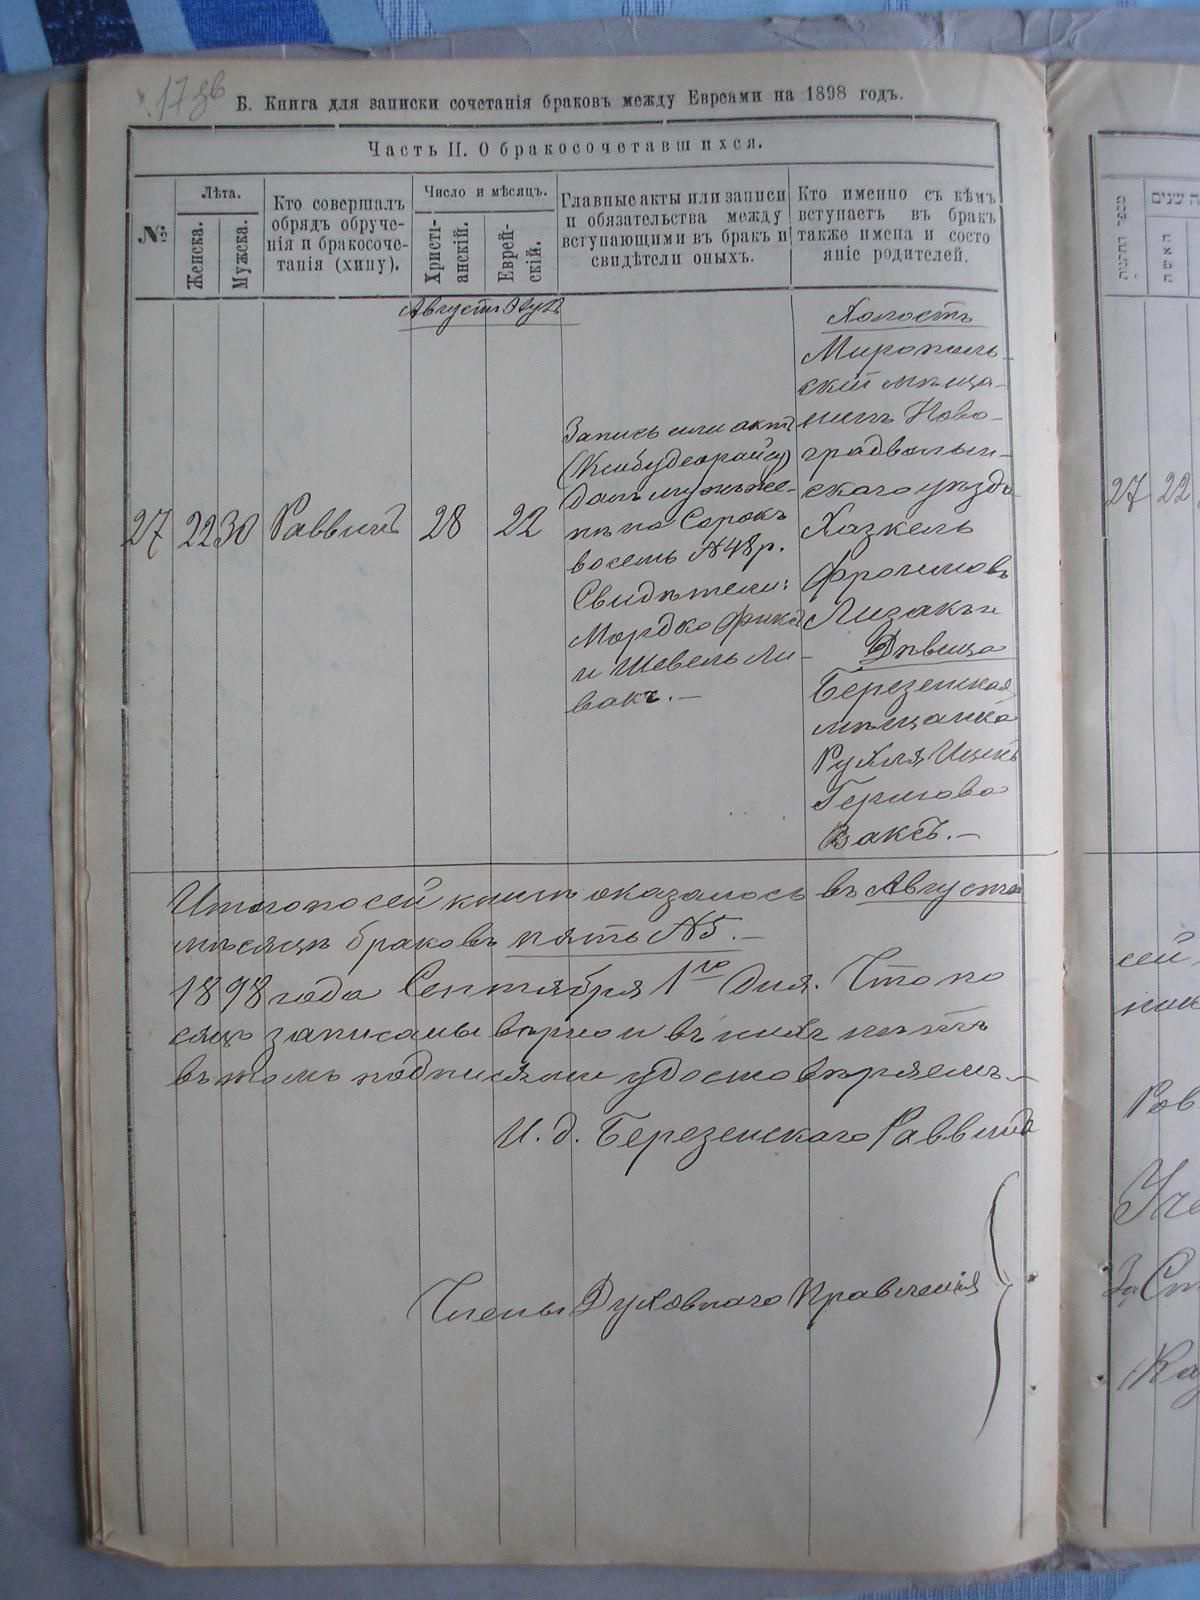 17 зв
Б. Книга для записки сочетанія браковъ между Евреями на 1898 годъ.
Часть II. О бракосочетавшихся.
№
Лѣта.
Женска.
Мужска.
Кто совершалъ
обрядъ обруче-
нія и бракосоче-
танія (хипу).
Число и мѣсяцъ.
Христі-
анскій.
Еврей-
скій.
Главные акты или записи
и обязательства между
вступающими въ бракъ и
свидѣтели оныхъ.
Кто именно съ кѣмъ
вступаетъ въ бракъ
также имена и состо
яніе родителей.
Августъ Элулъ
27
22
30
Раввинъ
28
22
Запись или актъ
далъ мужъ же-
нѣ на Сорокъ
восемь №48 р.
Свидѣтели:
Мордко Фикс
и Шевель Ли-
вакъ.—
Холостъ
Мирополь-
скій мѣща-
нинъ Ново-
градволын-
скаго уѣзда
Хазкель
Фроимовъ
Лизакъ и
Дѣвица
Березенская
мѣщанка
Рухля Ицко
Гершова
Ваксъ.—
Итого по сей книгѣ оказалось въ Августѣ
мѣсяцѣ браковъ пять №5.—
1898 года Сентября 1го дня. Что по
сяцъ записаны вѣрно и въ нихъ нѣтъ
въ томъ подписями удостовѣряемъ—
И. д. Березенскаго Раввина
Члены Духовнаго Правленія
מספר החתונות
האשה
27
22
сей